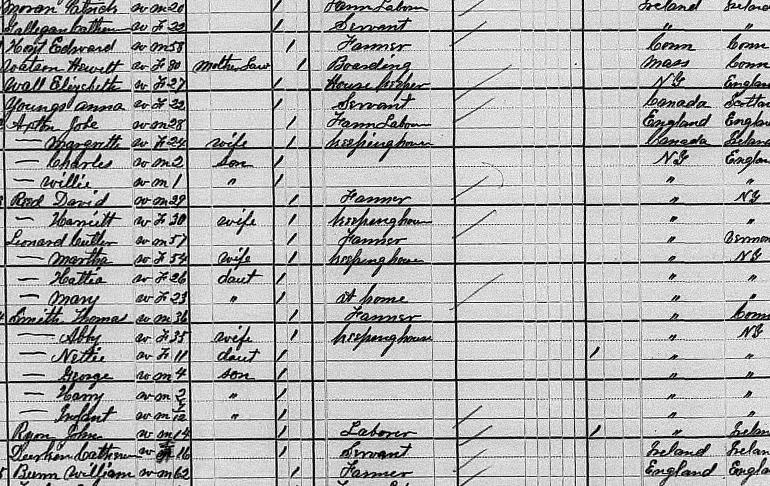 Moran Patrick w m 20 Farm Labour Ireland Ireland
Galligan Cathern w F 22 Servant " "
Hoyt Edward w m 58 Farmer Conn Conn
Watson Hewitt w F 80 Mother Law Boarding Mass Conn
Wall Elizabeth w F 27 House keeper NY England
Youngs anna w F 22 Servant Canada Scotland
Apton Jobe w m 28 Farm Labour England England
— Margrette w F 24 wife keeping house Canada Ireland
— Charles w m 2 son NY England
— Willie w m 1 " " "
Reed David w m 29 Farmer " NY
— Harriett w F 30 wife keeping house " "
Leonard Cutler w m 57 Farmer " Vermont
— Martha w F 54 wife keeping house " NY
— Hattie w F 26 daut " "
— Mary w F 23 " at home " "
Smith Thomas w m 36 Farmer " Conn
— Abby w F 35 wife keeping house " NY
— Nettie w F 11 daut " "
— George w m 4 son " "
— Harry w m 2 " " "
— Infant w m " " "
Ryon John w m 14 Laborer " Ireland
Cathern w F 16 Servant Ireland Ireland
Bunn William w m 62 Farmer England England